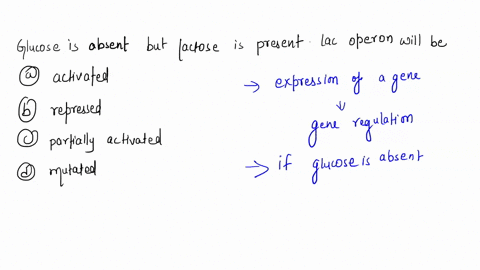 Glucose is absent but lactose is present. lac operon will be
a activated
b repressed
c partially activated
d mutated
→ expression of a gene
↓
gene regulation
→ if glucose is absent